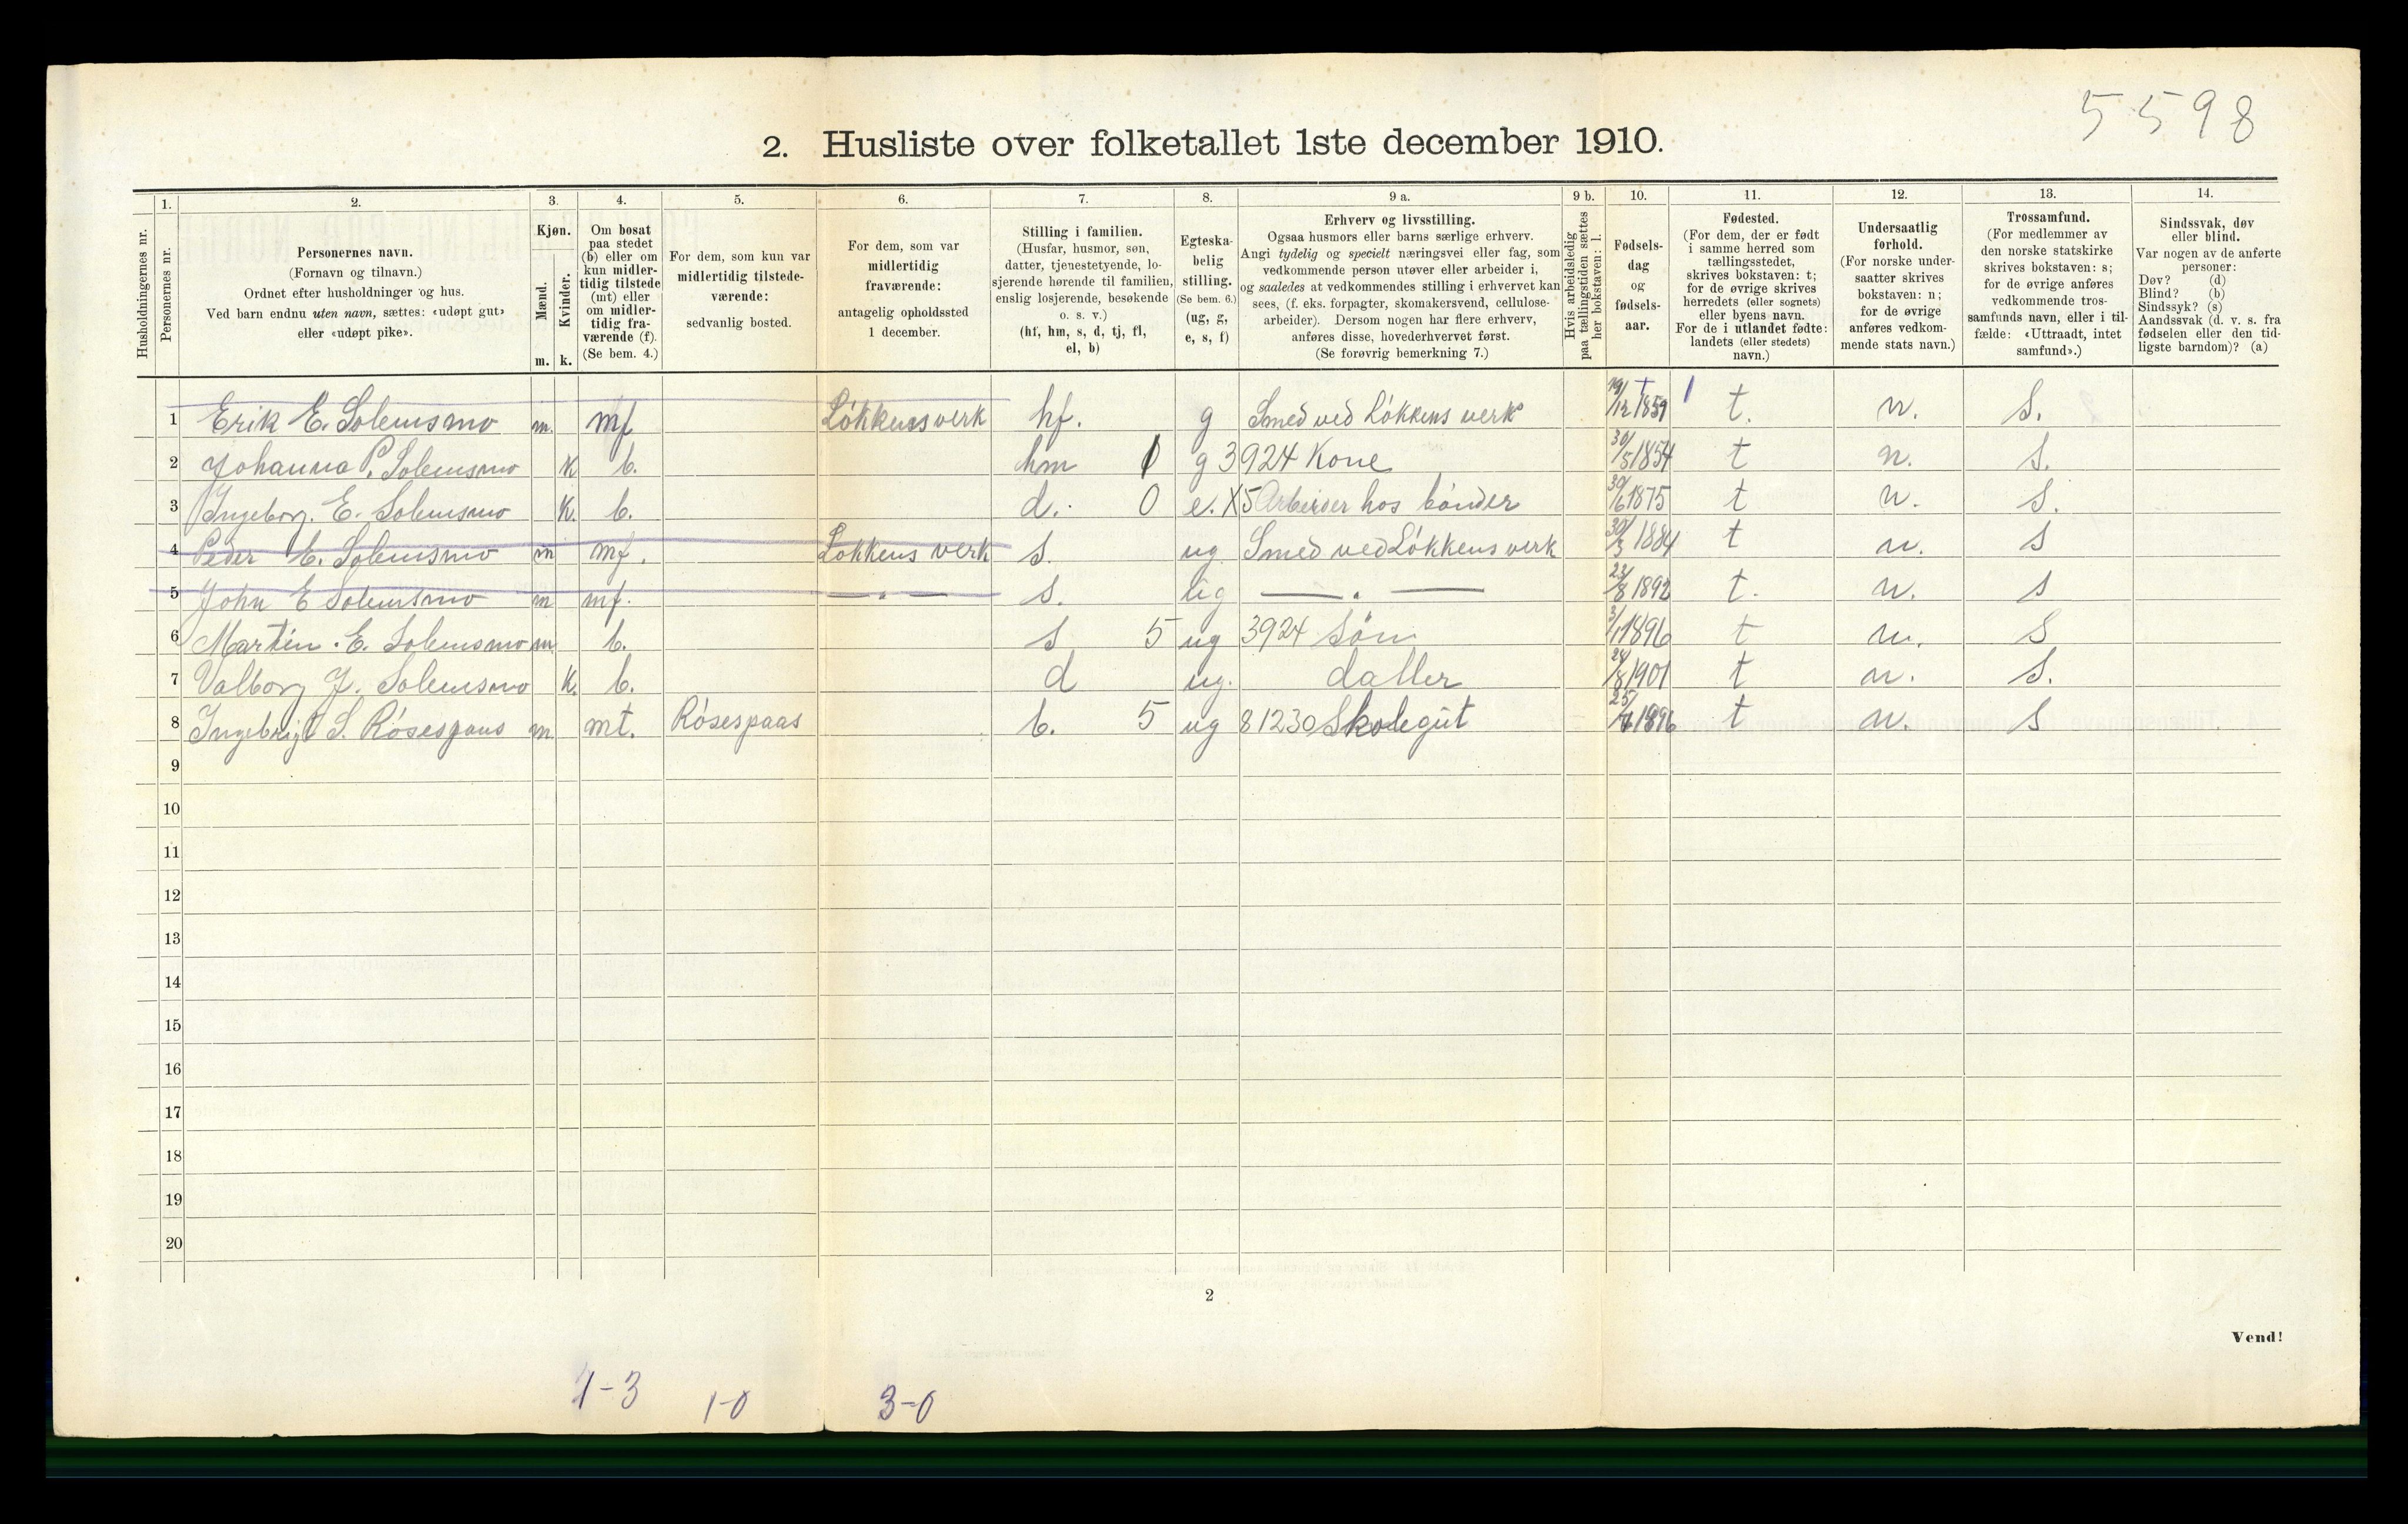 5598
2. Husliste over folketallet 1ste december 1910.
Husholdningernes nr.
1.
Personernes nr.
2.
Personernes navn.
(Fornavn og tilnavn.)
Ordnet efter husholdninger og hus.
Ved barn endnu uten navn, sættes: «udøpt gut»
eller «udøpt pike».
3.
Kjøn.
Mænd.
Kvinder.
m. k.
4.
Om bosat
paa stedet
(b) eller om
kun midler-
tidig tilstede
(mt) eller
om midler-
tidig fra-
værende (f).
(Se bem. 4.)
5.
For dem, som kun var
midlertidig tilstede-
værende:
sedvanlig bosted.
6.
For dem, som var
midlertidig
fraværende:
antagelig opholdssted
1 december.
7.
Stilling i familien.
(Husfar, husmor, søn,
datter, tjenestetyende, lo-
sjerende hørende til familien,
enslig losjerende, besøkende
o. s. v.)
(hf, hm, s, d, tj, fl,
el, b)
8.
Egteska-
belig
stilling.
(Se bem. 6.)
(ug, g,
e, s, f)
9 a.
Erhverv og livsstilling.
Ogsaa husmors eller barns særlige erhverv.
Angi tydelig og specielt næringsvei eller fag, som
vedkommende person utøver eller arbeider i,
og saaledes at vedkommendes stilling i erhvervet kan
sees, (f. eks. forpagter, skomakersvend, cellulose-
arbeider). Dersom nogen har flere erhverv,
anføres disse, hovederhvervet først.
(Se forøvrig bemerkning 7.)
9 b.
Hvis arbeidsledig
paa tællingstiden sættes
her bokstaven: l.
10.
Fødsels-
dag
og
fødsels-
aar.
11.
Fødested.
(For dem, der er født
i samme herred som
tællingsstedet,
skrives bokstaven: t;
for de øvrige skrives
herredets (eller sognets)
eller byens navn.
For de i utlandet fødte:
landets (eller stedets)
navn.)
12.
Undersaatlig
forhold.
(For norske under-
saatter skrives
bokstaven: n;
for de øvrige
anføres vedkom-
mende stats navn.)
13.
Trossamfund.
(For medlemmer av
den norske statskirke
skrives bokstaven: s;
for de øvrige anføres
vedkommende tros-
samfunds navn, eller i til-
fælde: «Uttraadt, intet
samfund».)
14.
Sindssvak, døv
eller blind.
Var nogen av de anførte
personer:
Døv? (d)
Blind? (b)
Sindssyk? (s)
Aandssvak (d. v. s. fra
fødselen eller den tid-
ligste barndom)? (a)
1 Erik E. Solemsmo m. mf Løkkens verk hf. g Smed ved Løkkens verk 19/12 1859 t. n. S.
2 Johanna P. Solemsmo K b. hm 1 g 3924 Kone 30/5 1854 t n. S.
3 Ingeborg. E. Solemsmo K. b. d. 0 e. X5 Arbeider hos bønder 30/6 1875 t n. S.
4 Peder E. Solemsmo m mf. Løkkens verk s. ug Smed ved Løkkens verk 30/3 1884 t n. S
5 John E Solemsmo m mf. — " — s. ug — " — 23/8 1892 t. n. S
6 Martin. E. Solemsmo m b. s 5 ug 3924 Søn 3/1 1896 t n. S
7 Valborg J. Solemsmo K. b. d ug. datter 24/8 1901 t n. S.
8 Ingebrigt S. Røsespaas m. mt. Røsespaas b. 5 ug 81230 Skolegut 25/4 1896 t n. S
9
10
11
12
13
14
15
16
17
18
19
20
2
Vend!
1-3 1-0 3-0